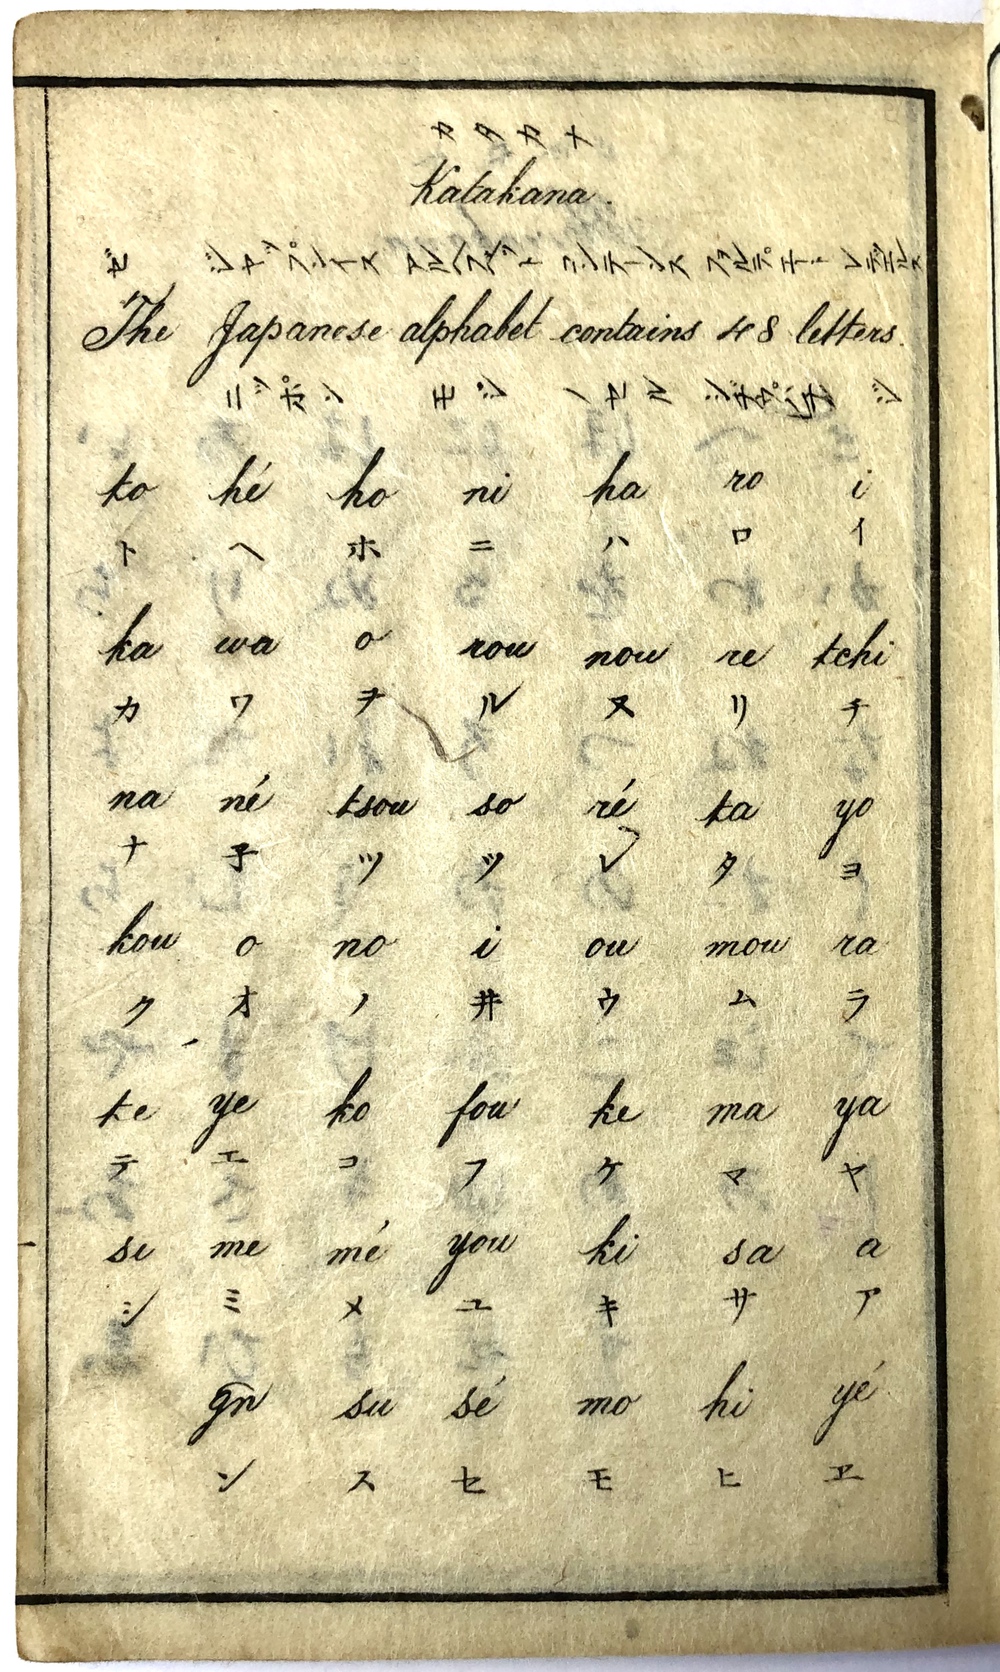 カタカナ
Katakana.
ゼ
The Japanese alphabet contains 48 letters.
ニッポン モジ
to hé ho ni ha ro i
ト ヘ ホ ニ ハ ロ イ
ka wa o rou nou re tchi
カ ワ ヲ ル ヌ リ チ
na né tsou so ré ta yo
ナ 子 ツ ツ レ タ ヨ
kou o no i ou mou ra
ク オ ノ 井 ウ ム ラ
te ye ko fou ke ma ya
テ エ コ フ ケ マ ヤ
si me mé you ki sa a
シ ミ メ ユ キ サ ア
gn su sé mo hi yé
ン ス セ モ ヒ ヱ